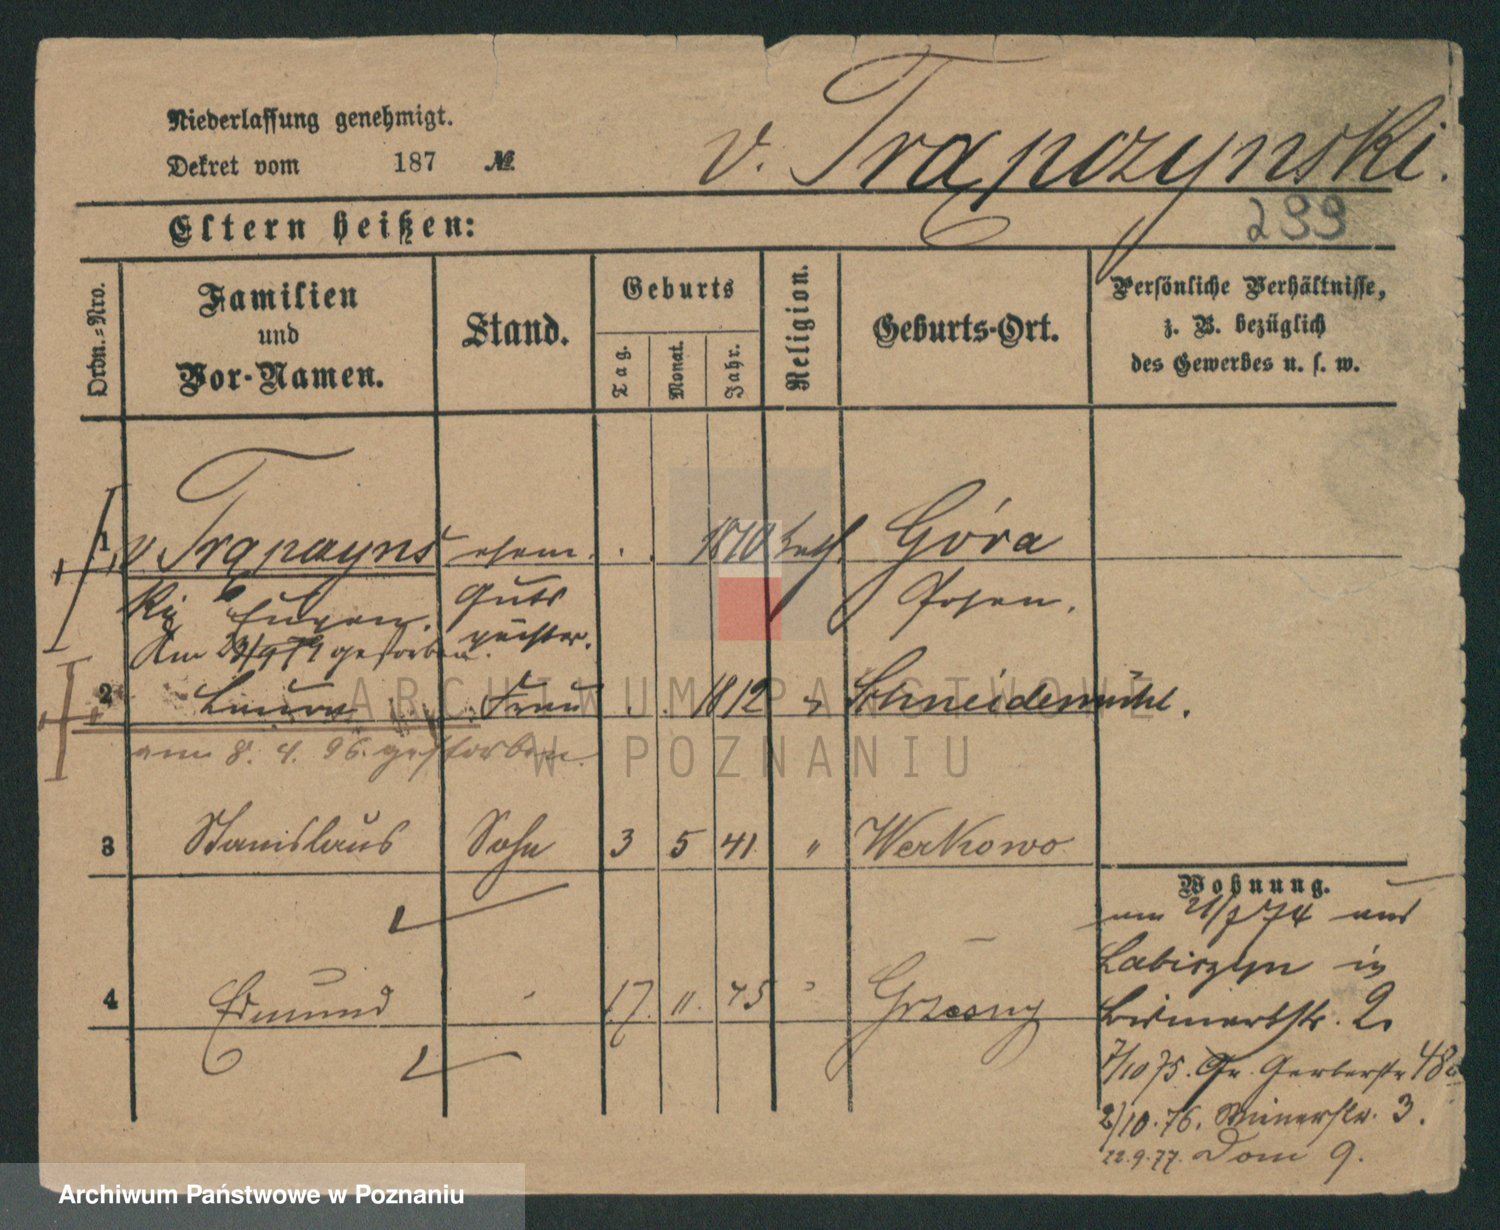 Niederlassung genehmigt.
Dekret vom 187 №
v. Trąpczynski.
Eltern heißen:
299
Ordn.-Nro.
Familien
und
Vor-Namen.
Stand.
Geburts
Tag.
Monat.
Jahr.
Religion.
Geburts-Ort.
Persönliche Verhältnisse,
z. B. bezüglich
des Gewerbes u. s. w.
1 v. Trąpczyns ehem. . . 1810 kath. Góra
ki Eugen. Guts Posen.
pächter.
Am gestorben.
2 Laura Frau . . 1812 " Schneidemühl.
am 8. 4. 96. gestorben.
3 Stanislaus Sohn 3 5 41. " Werkowo
4 Edmund " 17. 11. 45 "
Wohnung.
am 21/7 74 aus
Labiszyn in
Bismarkstr. 2.
7/10 75. Gr. Gerberstr 48
2/10. 76. 3.
22.9.77. Dom 9.
ARCHIWUM PAŃSTWOWE
W POZNANIU
Archiwum Państwowe w Poznaniu